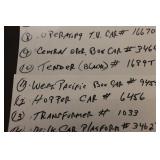 ⑧ OPERATING T.V. CAR # 16670
⑨ CENTRAL OPER. BOX CAR # 3464
⑩ TENDER (BLACK) # 1689T
⑪ WEST PACIFIC BOX CAR # 9450
12 HOPPER CAR # 6456
⑬ TRANSFORMER # 1033
CAR PLATFORM # 3462